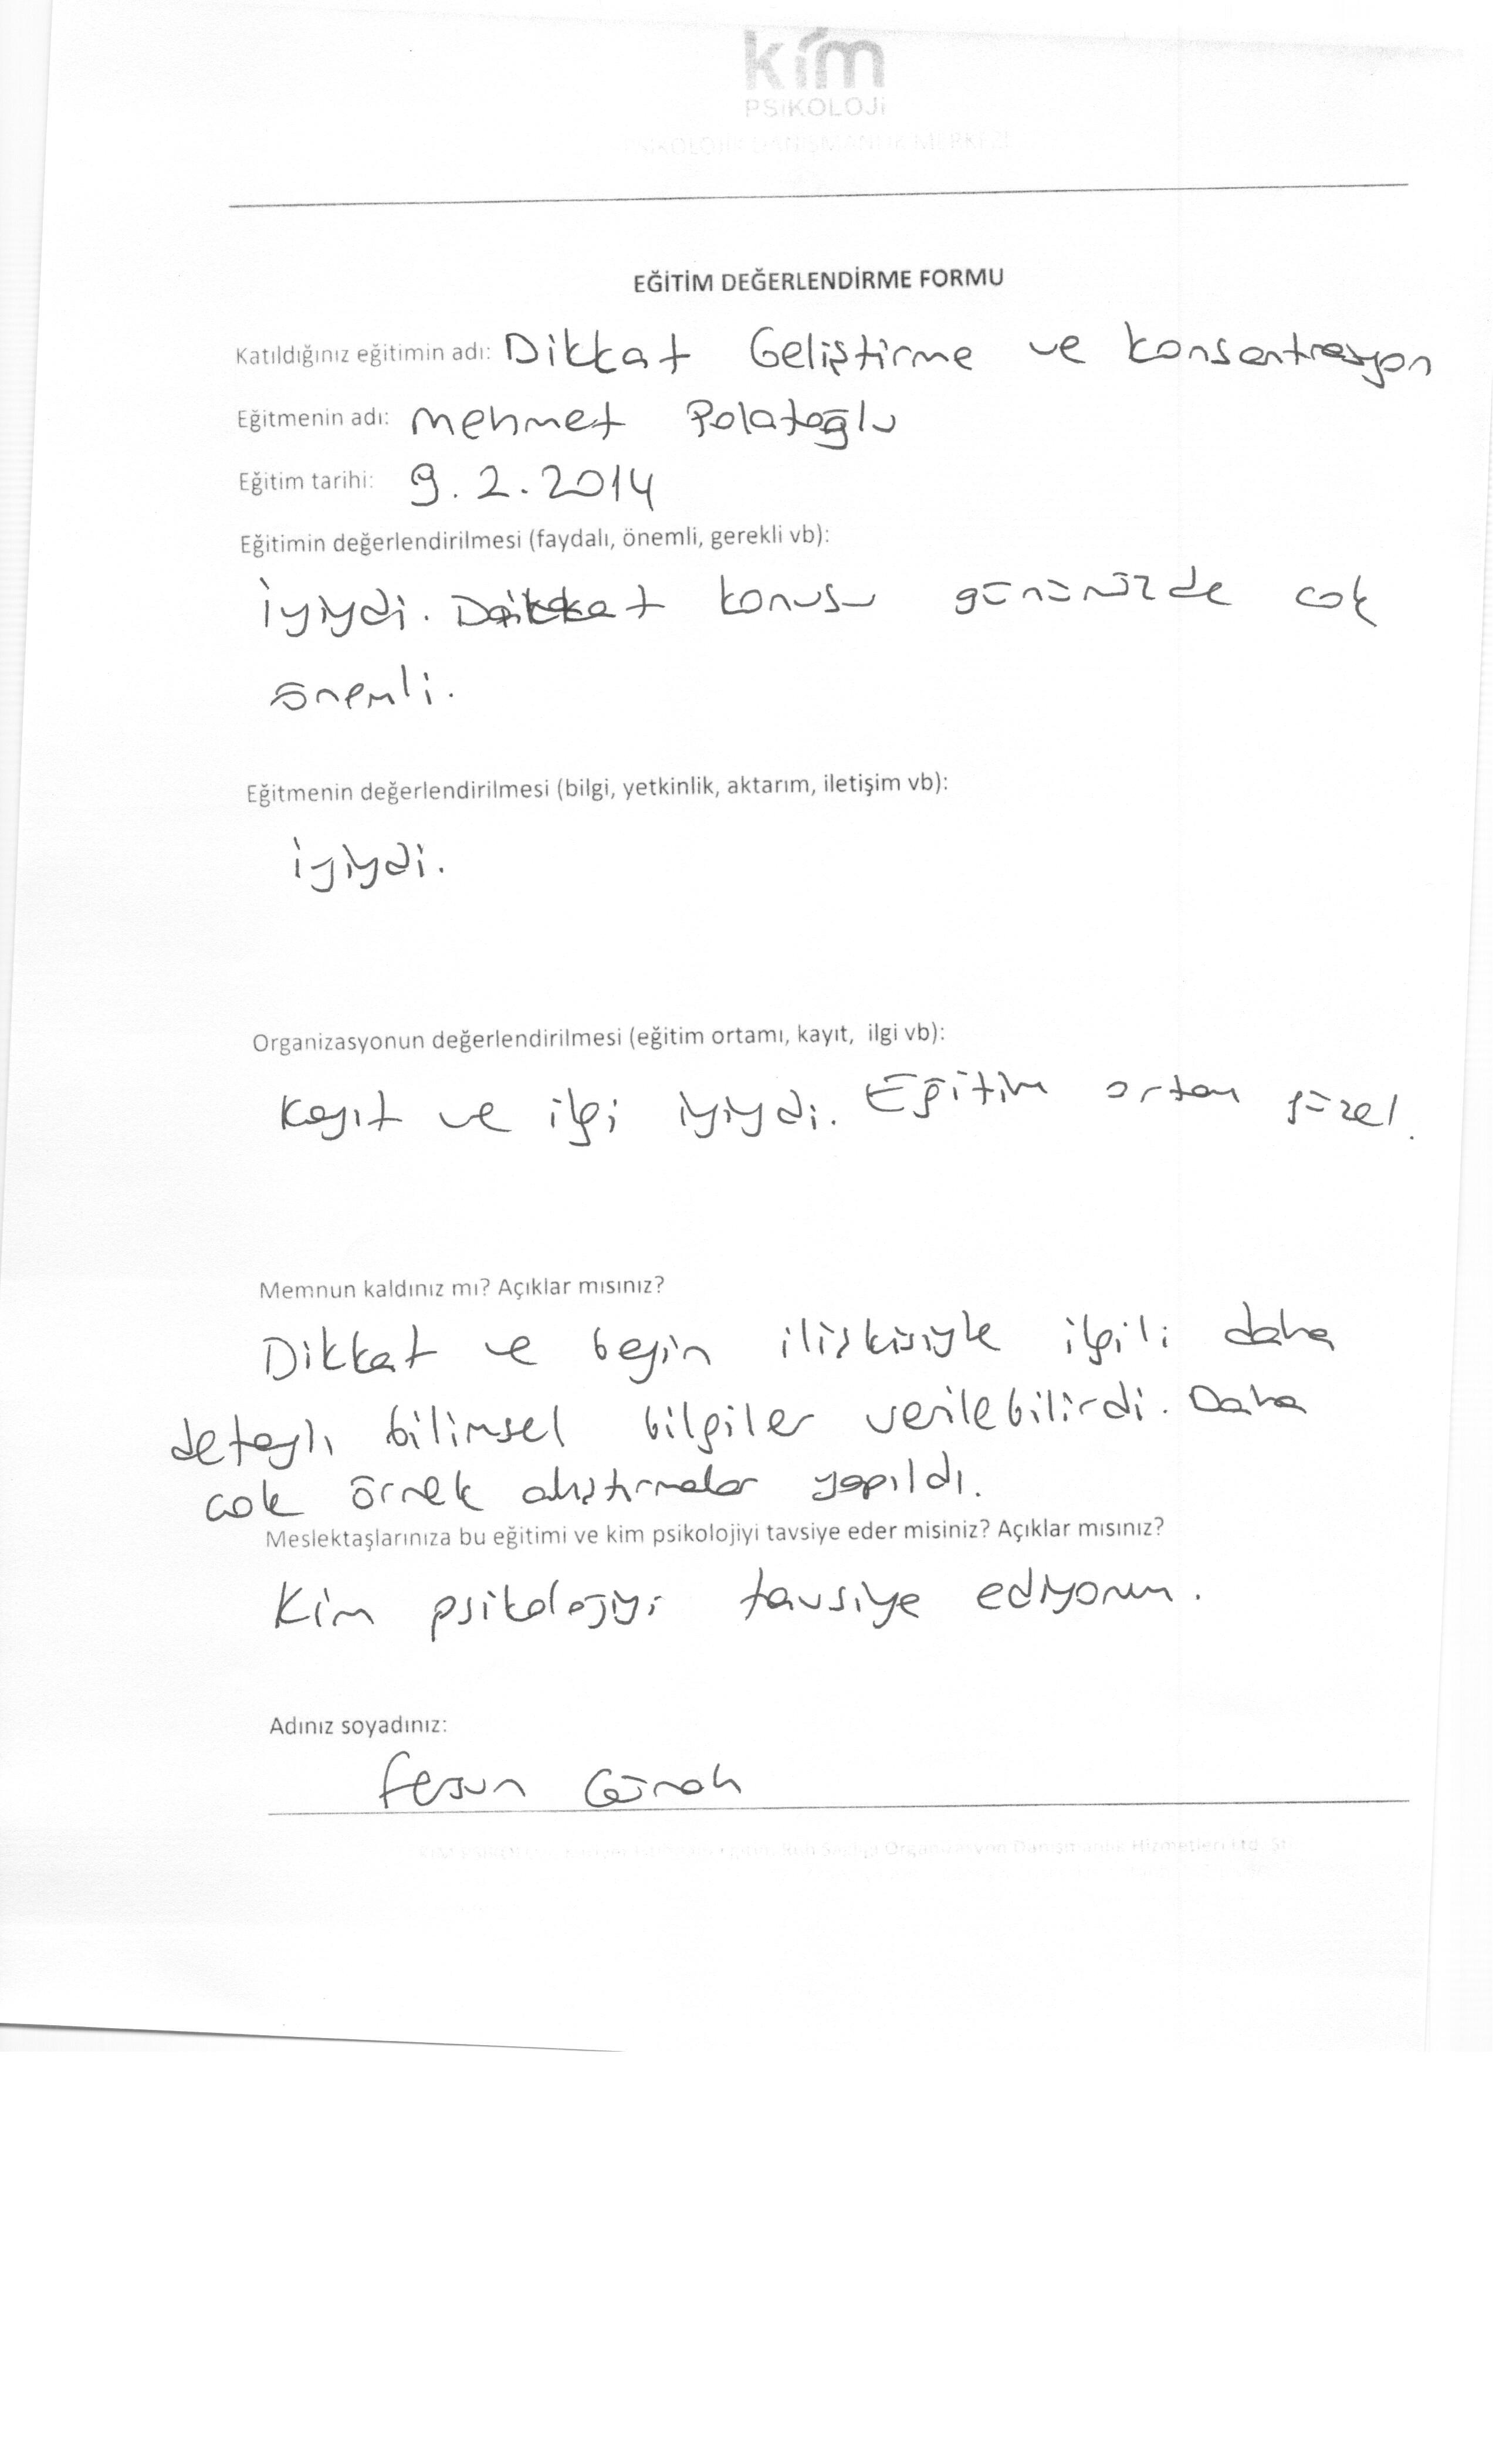 kim
PSİKOLOJİ
PSİKOLOJİK DANIŞMANLIK MERKEZİ
EĞİTİM DEĞERLENDİRME FORMU
Katıldığınız eğitimin adı: Dikkat Geliştirme ve Konsantrasyon
Eğitmenin adı: Mehmet Polatoğlu
Eğitim tarihi: 9.2.2014
Eğitimin değerlendirilmesi (faydalı, önemli, gerekli vb):
İyiydi. Dikkat konusu günümüzde cok
önemli.
Eğitmenin değerlendirilmesi (bilgi, yetkinlik, aktarım, iletişim vb):
iyiydi.
Organizasyonun değerlendirilmesi (eğitim ortamı, kayıt, ilgi vb):
Kayıt ve ilgi iyiydi. Eğitim ortam güzel.
Memnun kaldınız mı? Açıklar mısınız?
Dikkat ve beyin ilişkisiyle ilgili daha
detaylı bilimsel bilgiler verilebilirdi. Daha
cok örnek alıştırmalar yapıldı.
Meslektaşlarınıza bu eğitimi ve kim psikolojiyi tavsiye eder misiniz? Açıklar mısınız?
Kim psikolojiyi tavsiye ediyorum.
Adınız soyadınız:
Fesun
Ruh Sağlığı Organizasyon Danışmanlık Hizmetleri Ltd. Şti